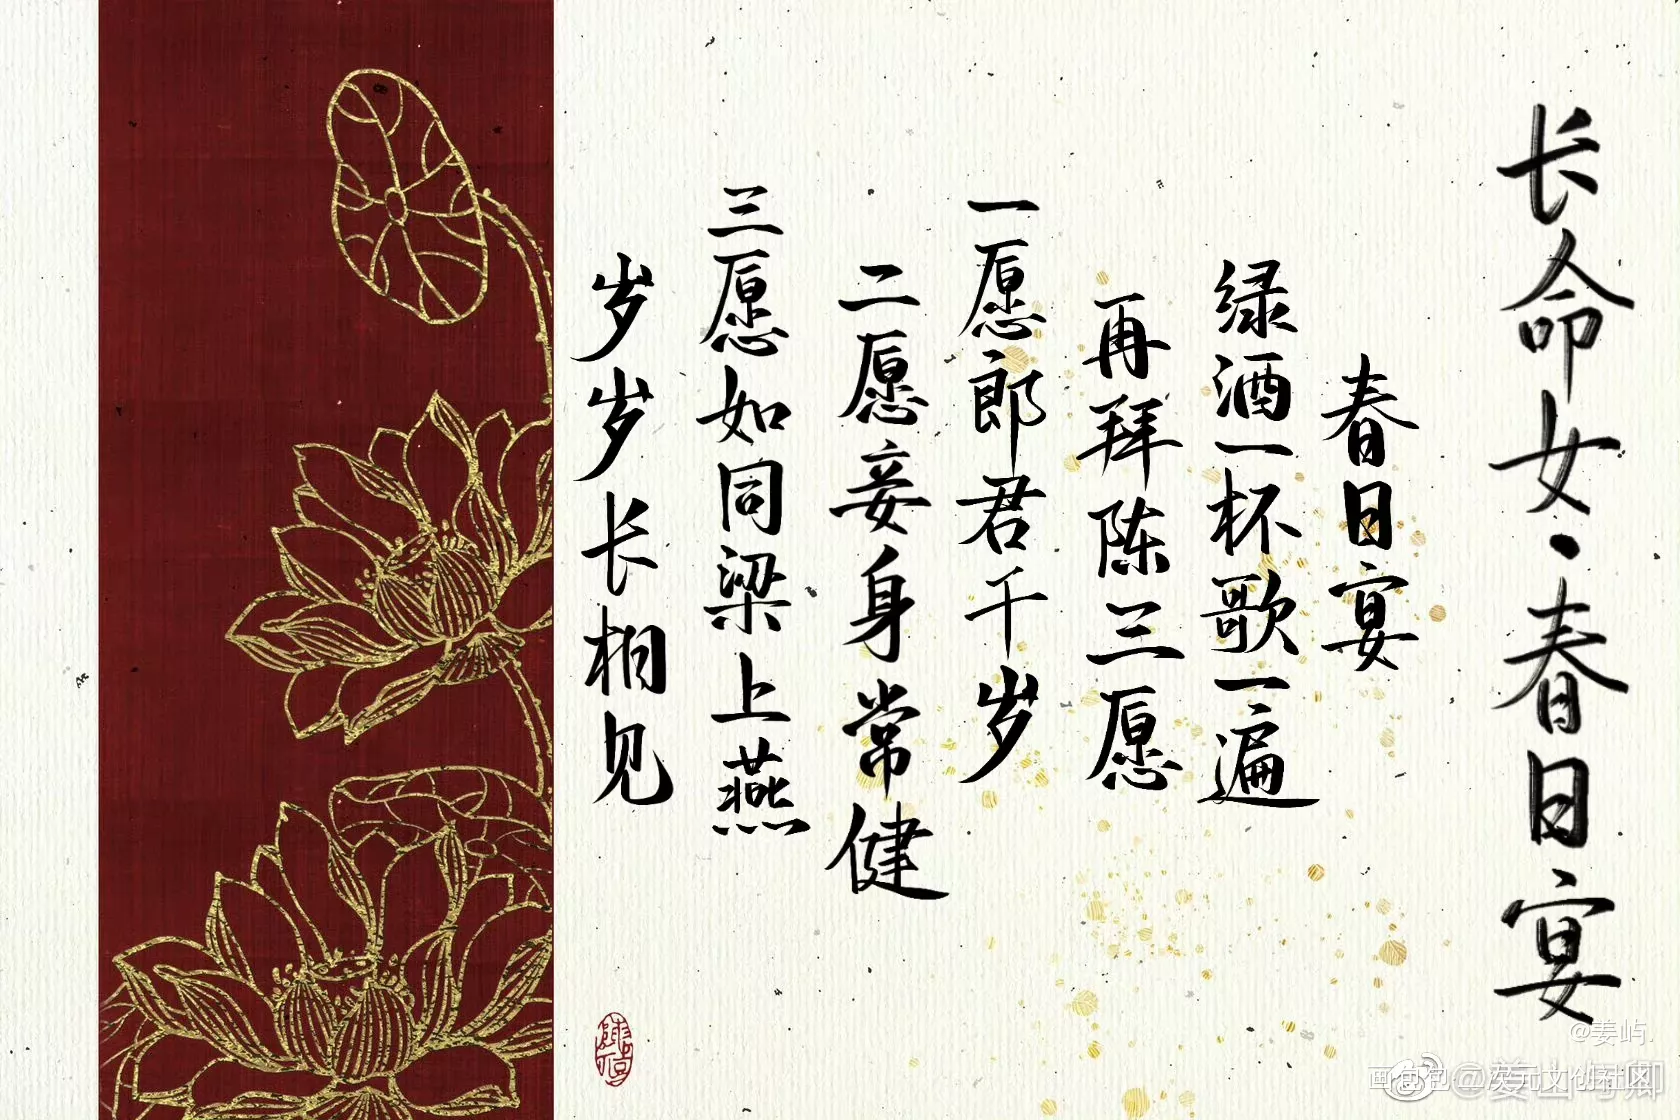 长命女·春日宴
春日宴
绿酒一杯歌一遍
再拜陈三愿
一愿郎君千岁
二愿妾身常健
三愿如同梁上燕
岁岁长相见
@姜屿.